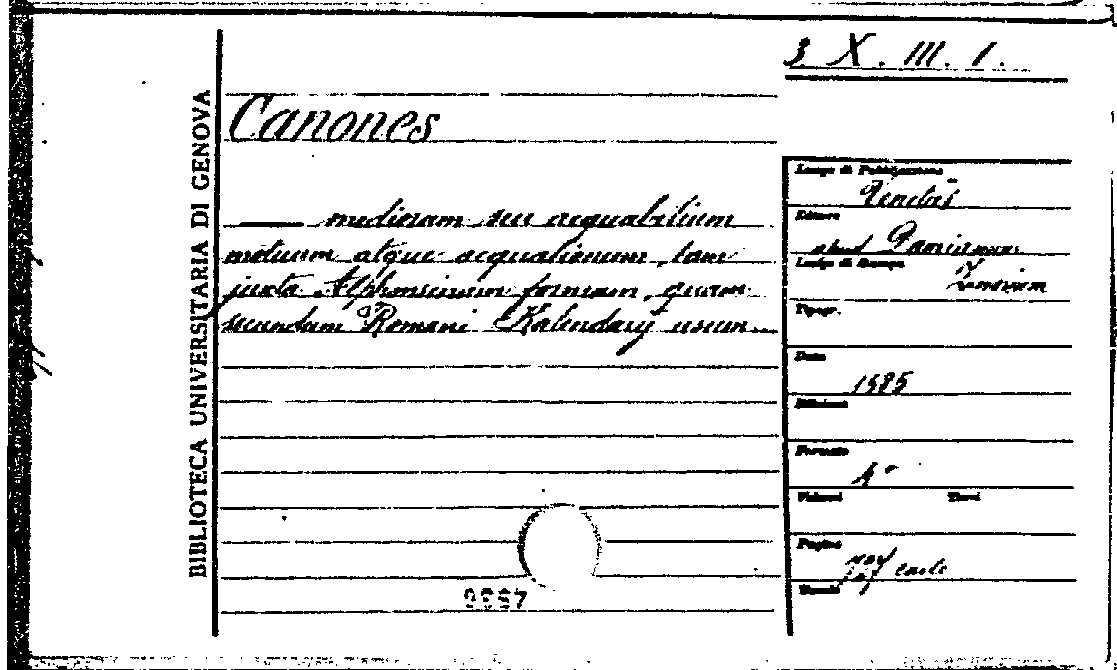 3 X. III. 1.
BIBLIOTECA UNIVERSITARIA DI GENOVA
Canones
—— mediorum seu aequabilium
motuum atque aequationum, tam
juxta Alphonsinum formam, quam
secundum Romani Kalendarij usum...
Luogo di Pubblicazione
Venetiis
Editore
apud
Luogo di Stampa
Tipogr.
Data
1585
Edizione
Formato
4°
Volumi Tomi
Pagine
carte